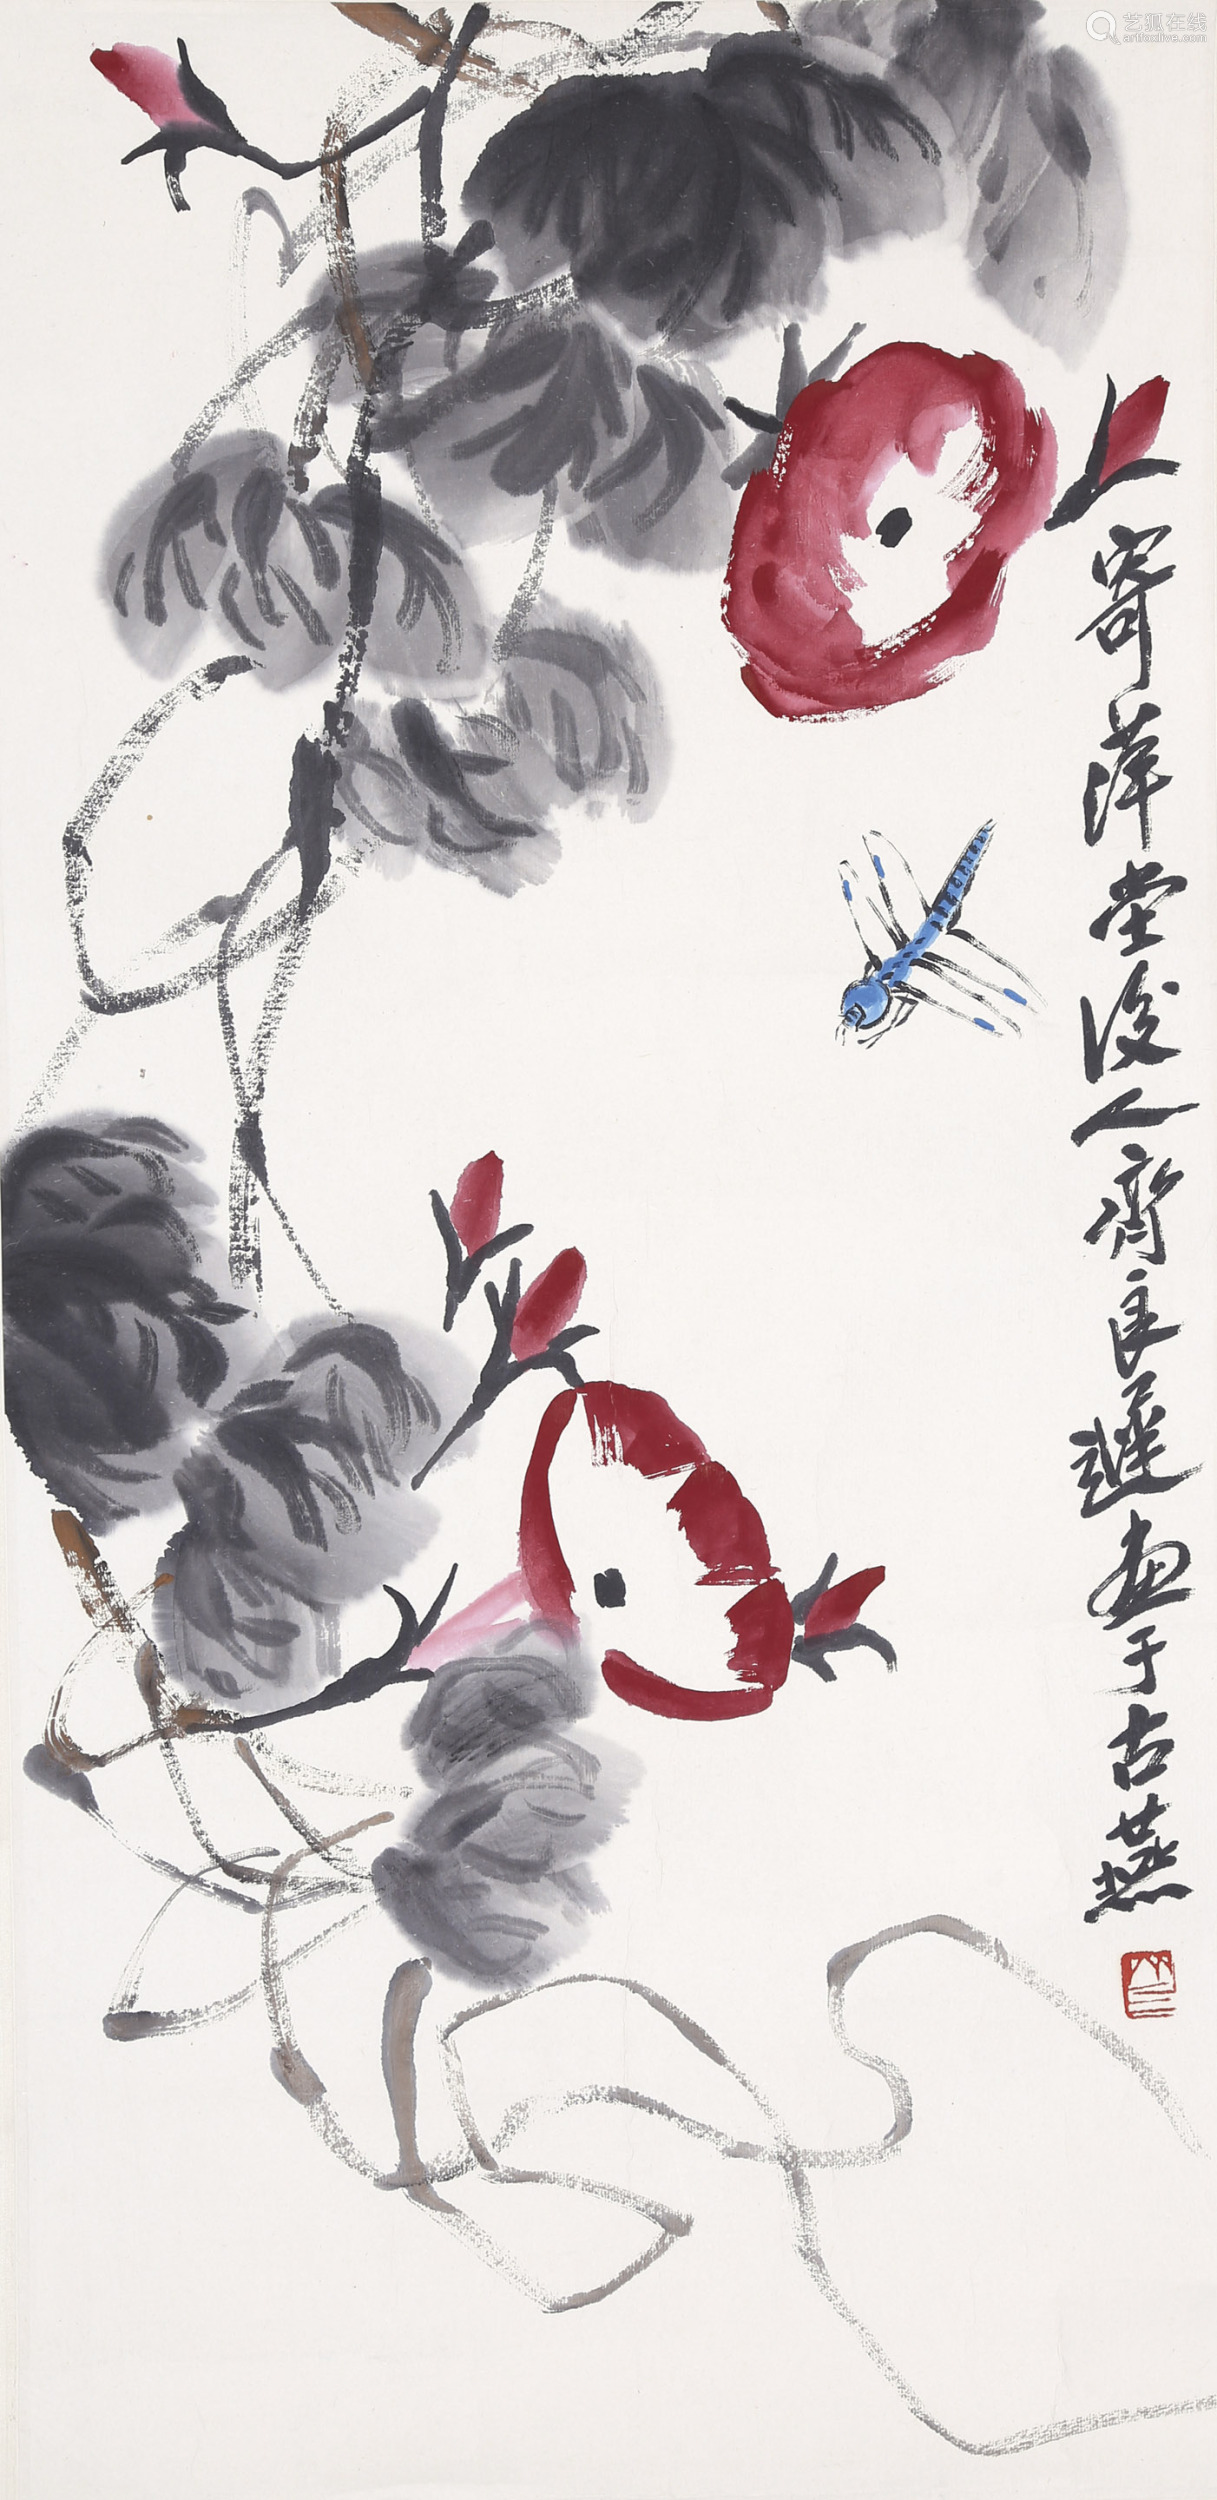 艺狐在线
artfoxlive.com
寄萍堂後人齊良遲画于古燕